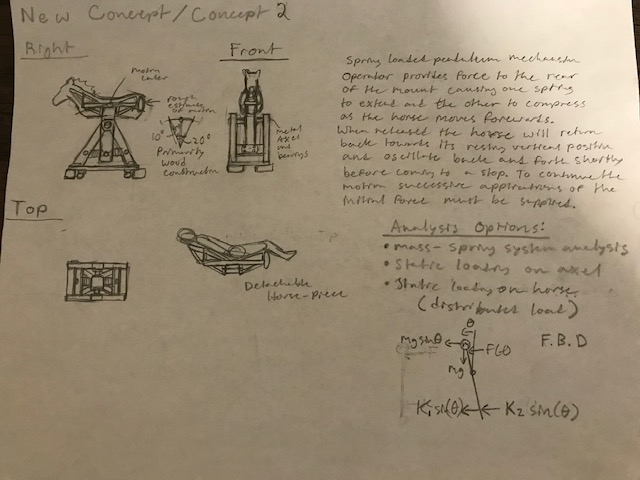 New Concept/Concept 2
Right
Front
motion
rough
estimate
of motion
10°
20°
Primarily
wood
construction
metal
Axel
and
bearings
Spring loaded pendulum mechanism
Operator provides force to the rear
of the mount causing one spring
to extend and the other to compress
as the horse moves forewards.
When released the horse will return
back towards its resting vertical position
and oscillate back and forth shortly
before coming to a stop. To continue the
motion successive applications of the
initial force must be supplied.
Top
Detachable
Horse-piece
Analysis Options:
• mass-spring system analysis
• Static loading on axel
• Static loading on horse
(distributed load)
θ
F.B.D
mgsinθ
mg
K₁sin(θ)
K₂ sin(θ)